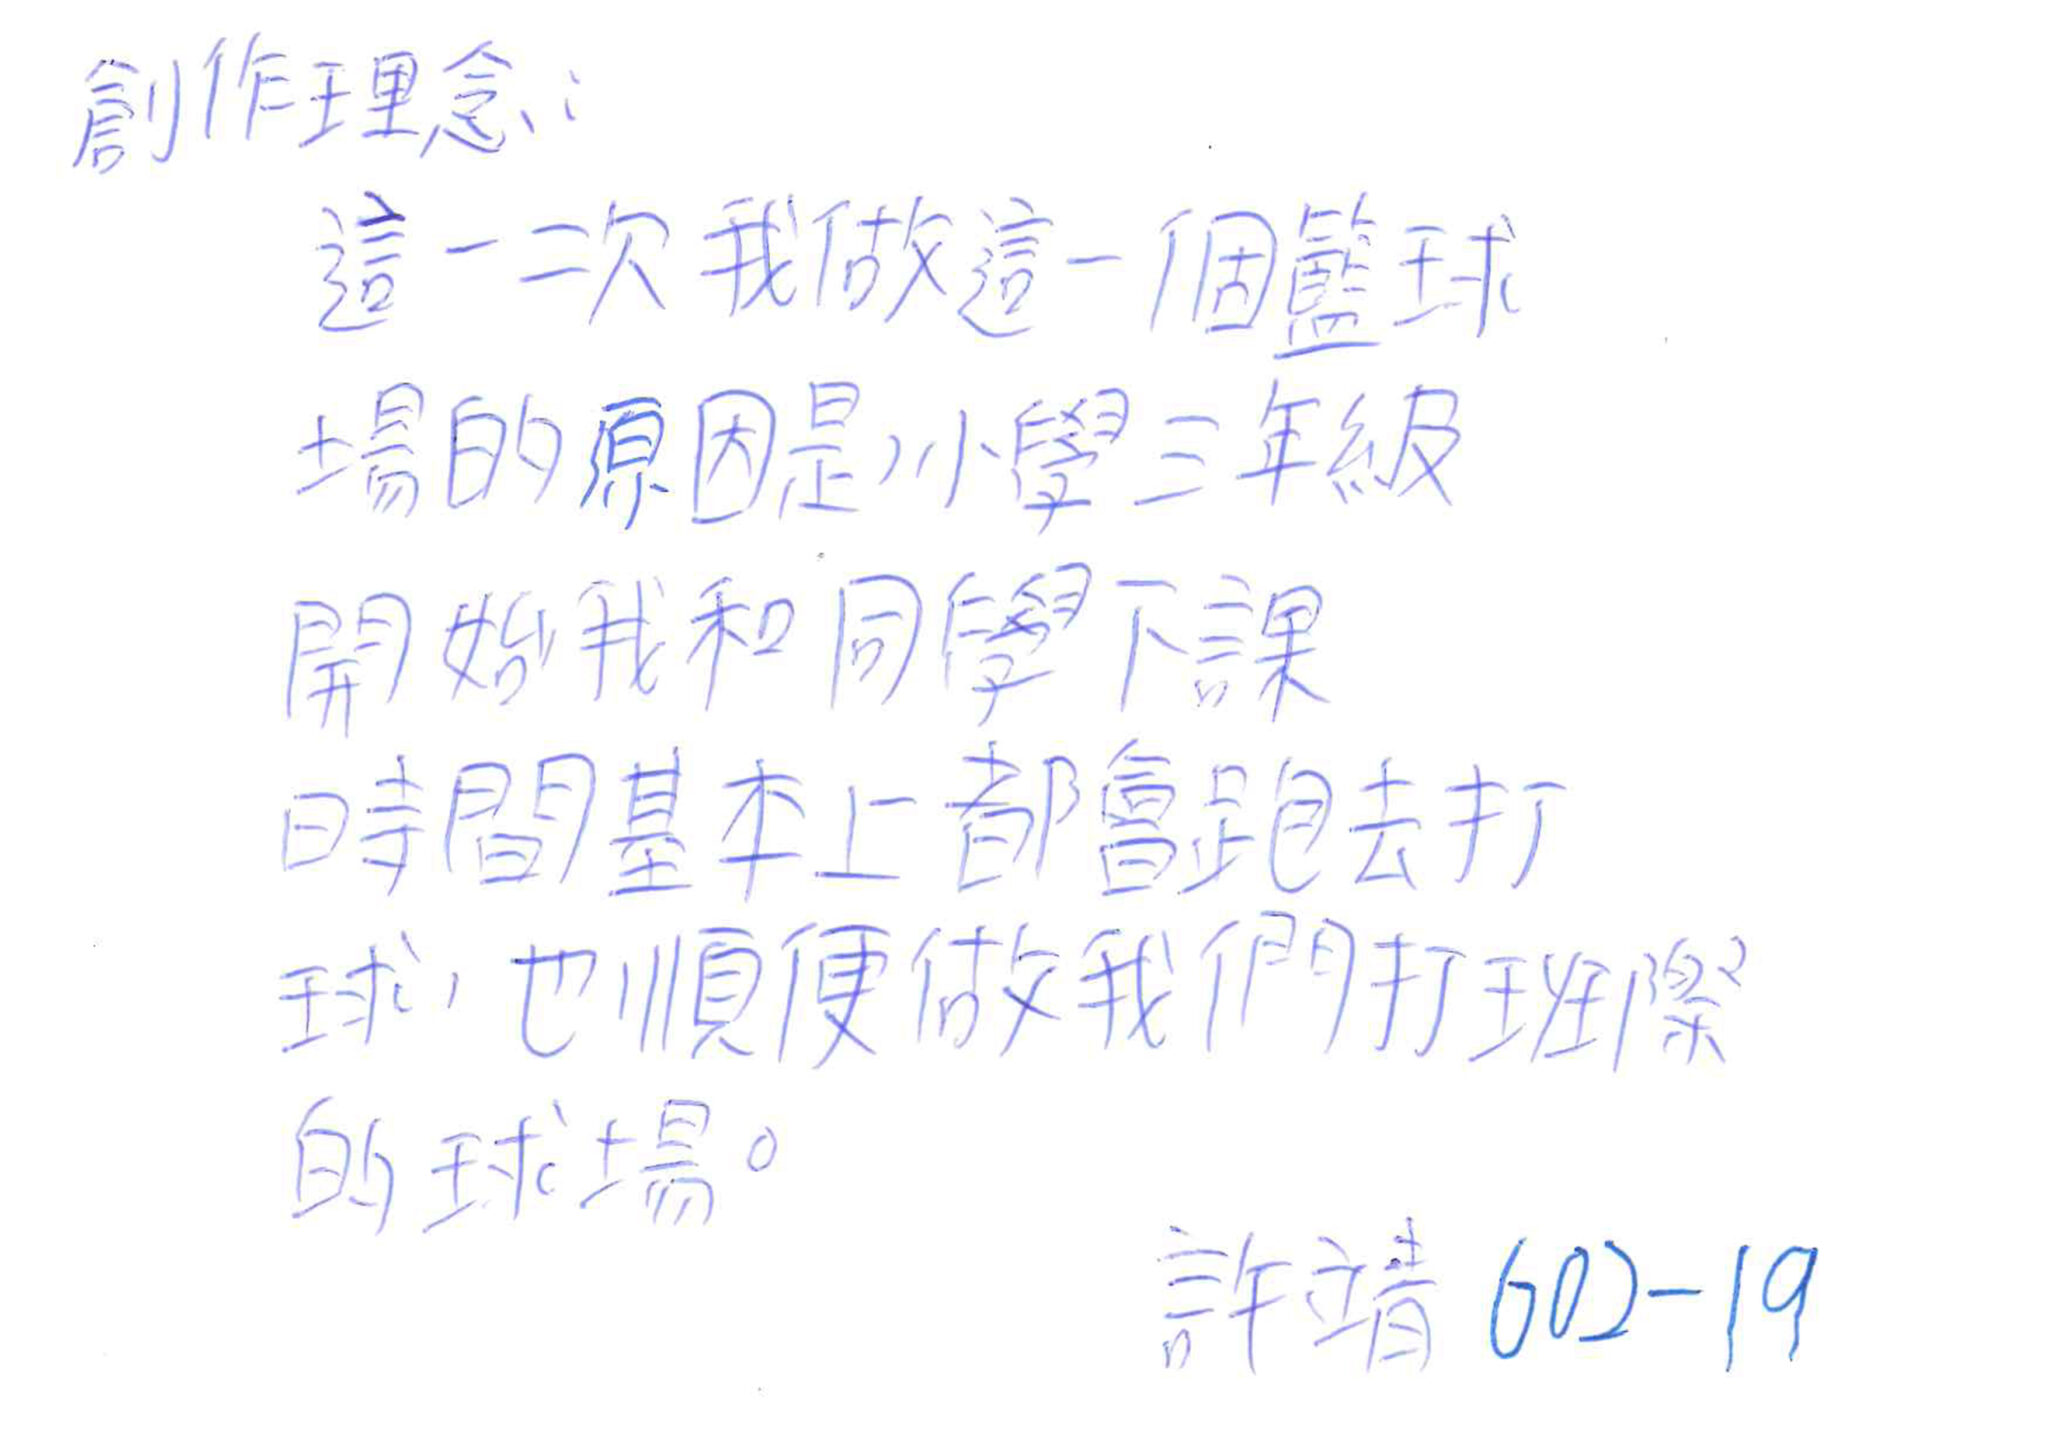 創作理念:
這一次我做這一個籃球
場的原因是,小學三年級
開始我和同學下課
時間基本上都會跑去打
球,也順便做我們打班際
的球場。
許靖 602-19